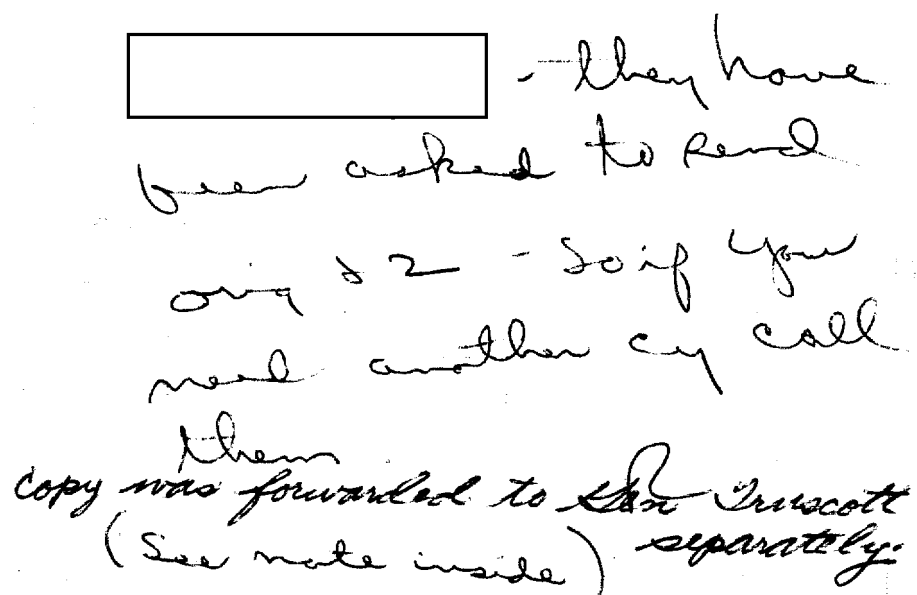 - they have
been asked to send
orig & 2 - So if you
need another cy call
them
copy was forwarded to Gen Truscott
separately.
(See note inside)